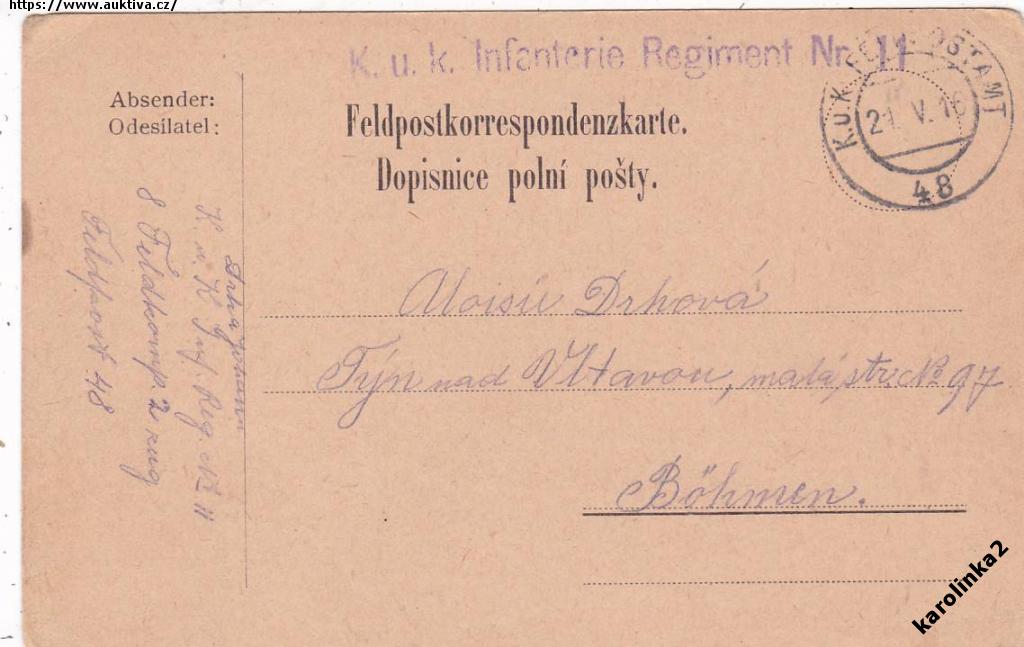 https://www.auktiva.cz/
K. u. k. Infanterie Regiment Nr. 11
K.u.K. FELDPOSTAMT
21. V. 16
48
Absender:
Odesílatel:
Feldpostkorrespondenzkarte.
Dopisnice polní pošty.
Drha Johann
K. u. K Inf. Reg. No 11
8 Feldkomp. 2 zug
Feldpost 48
Aloisie Drhová
Týn nad Vltavou, malá str. No 97
Böhmen.
karolinka2